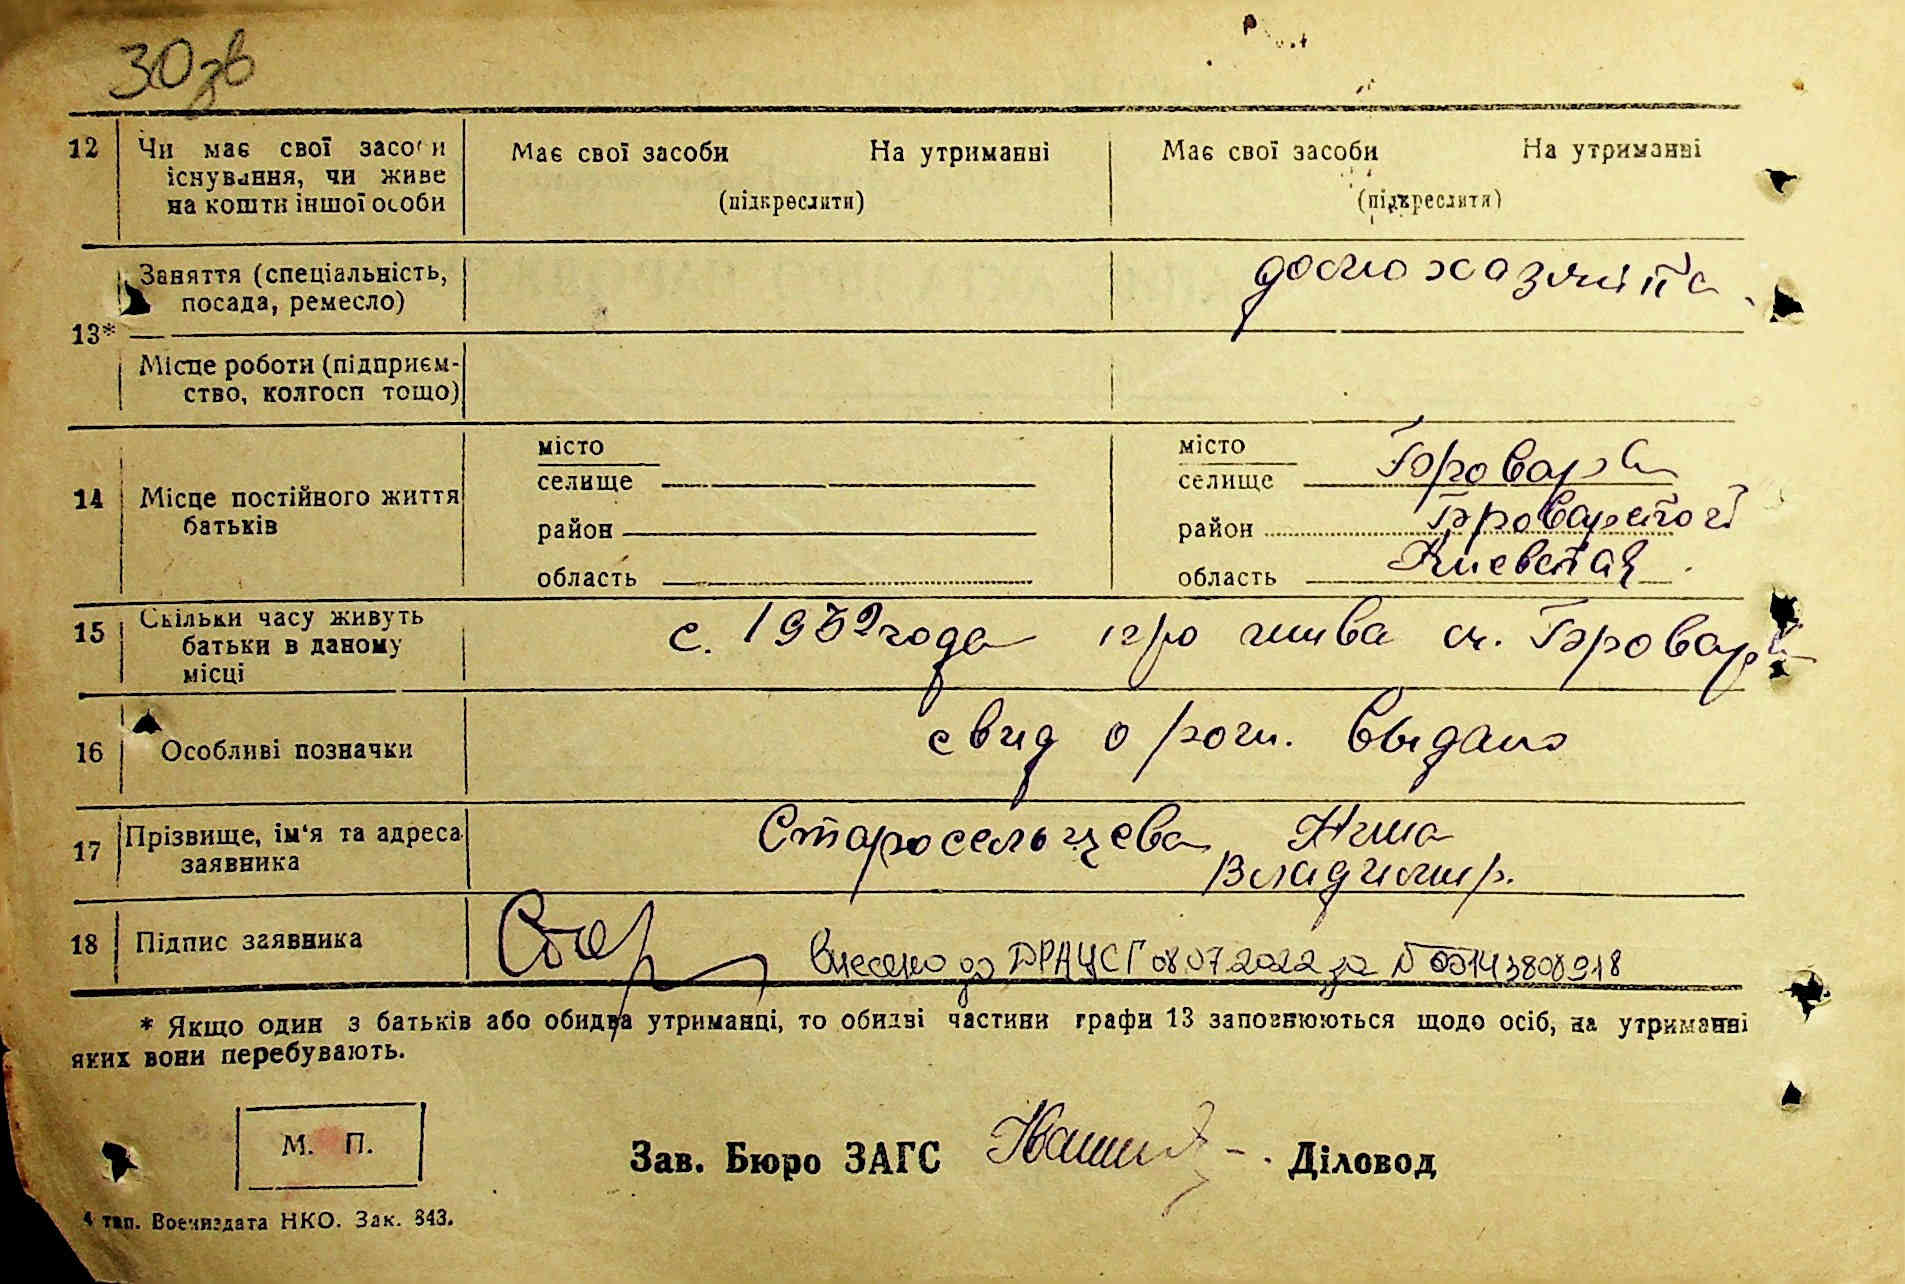 30зв
12 Чи має свої засоби Має свої засоби На утриманні Має свої засоби На утриманні
існування, чи живе
на кошти іншої особи (підкреслити) (підкреслити)
Заняття (спеціальність, домохазяйка
посада, ремесло)
13*
Місце роботи (підприєм-
ство, колгосп тощо)
місто місто
селище селище Бровары
14 Місце постійного життя
батьків
район район Броварской
область область Киевская
15 Скільки часу живуть с. 1939 года прожива м. Бровары
батьки в даному
місці
16 Особливі позначки свид о рож. выдано
17 Прізвище, ім'я та адреса Старосельцева Нина
заявника Владимир.
18 Підпис заявника Стар Внесено до ДРАЦСГ 08.07.2022 за № 00143808918
* Якщо один з батьків або обидва утриманці, то обидві частини графи 13 заповнюються щодо осіб, на утриманні
яких вони перебувають.
М. П.
Зав. Бюро ЗАГС Діловод
4 тип. Воениздата НКО. Зак. 843.